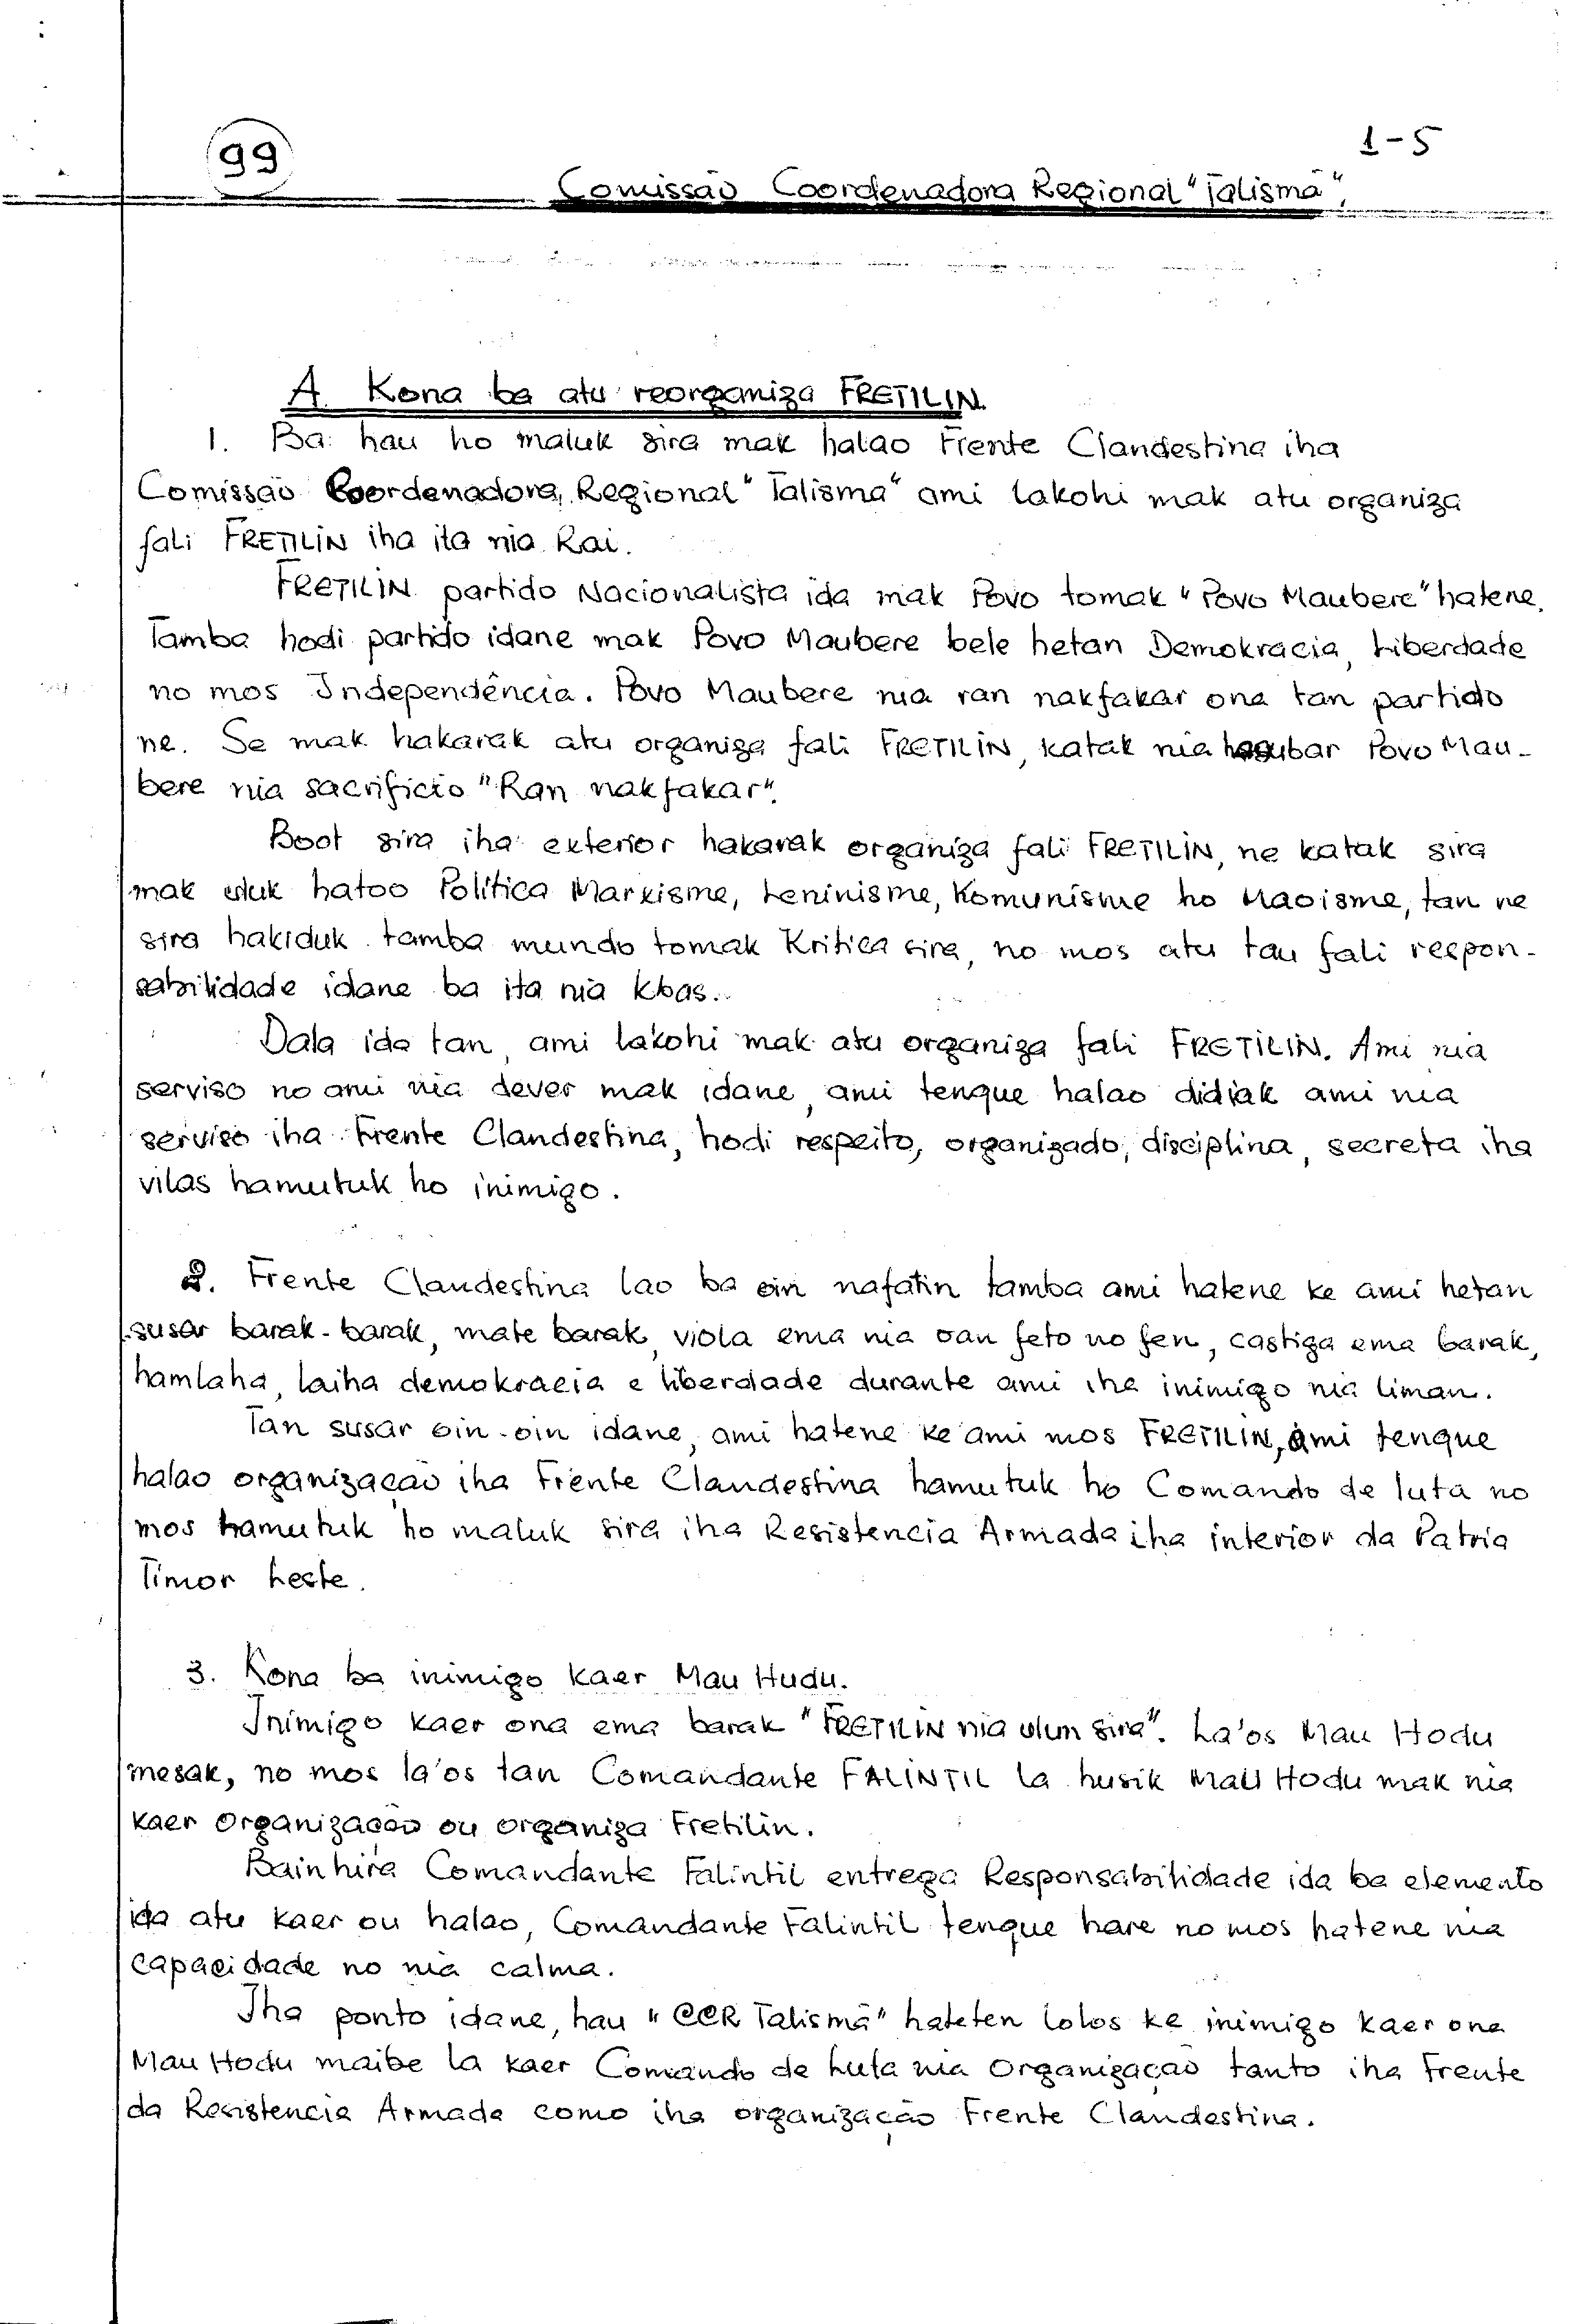 99
1-5
Comissão Coordenadora Regional "Talismã",
A. Kona ba atu reorganiza FRETILIN.
1. Ba hau ho maluk sira mak halao Frente Clandestina iha
Comissão Coordenadora, Regional "Talisma" ami lakohi mak atu organiza
fali FRETILIN iha ita nia Rai.
FRETILIN partido Nacionalista ida mak Povo tomak "Povo Maubere" hatene.
Tamba hodi partido idane mak Povo Maubere bele hetan Demokracia, Liberdade
no mos Independência. Povo Maubere nia ran nakfakar ona tan partido
ne. Se mak hakarak atu organiza fali FRETILIN, katak nia hasubar Povo Mau-
bere nia sacrificio "Ran nakfakar".
Boot sira iha exterior hakarak organiza fali FRETILIN, ne katak sira
mak uluk hatoo Política Marxisme, Leninisme, Komunisme ho Maoisme, tan ne
sira hakiduk tamba mundo tomak Kritica sira, no mos atu tau fali respon-
sabilidade idane ba ita nia kbas.
Dala ida tan, ami lakohi mak atu organiza fali FRETILIN. Ami nia
serviso no ami nia dever mak idane, ami tenque halao didiak ami nia
serviso iha Frente Clandestina, hodi respeito, organizado, disciplina, secreta iha
vilas hamutuk ho inimigo.
2. Frente Clandestina lao ba oin nafatin tamba ami hatene ke ami hetan
susar barak-barak, mate barak, viola ema nia oan feto no fen, castiga ema barak,
hamlaha, laiha demokracia e liberdade durante ami iha inimigo nia liman.
Tan susar oin-oin idane, ami hatene ke ami mos FRETILIN, ami tenque
halao organizacão iha Frente Clandestina hamutuk ho Comando de luta no
mos hamutuk ho maluk sira iha Resistencia Armada iha interior da Patria
Timor Leste.
3. Kona ba inimigo kaer Mau Hudu.
Inimigo kaer ona ema barak "FRETILIN nia ulun sira". La'os Mau Hodu
mesak, no mos la'os tan Comandante FALINTIL la husik Mau Hodu mak nia
kaer Organizacão ou organiza Fretilin.
Bainhira Comandante Falintil entrega Responsabilidade ida ba elemento
ida atu kaer ou halao, Comandante Falintil tenque hare no mos hatene nia
capacidade no nia calma.
Iha ponto idane, hau "CCR Talismã" hateten lolos ke inimigo kaer ona
Mau Hodu maibe la kaer Comando de Luta nia Organização tanto iha Frente
da Resistencia Armada como iha organização Frente Clandestina.